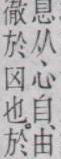 息从、心自由
徹於囟也。於